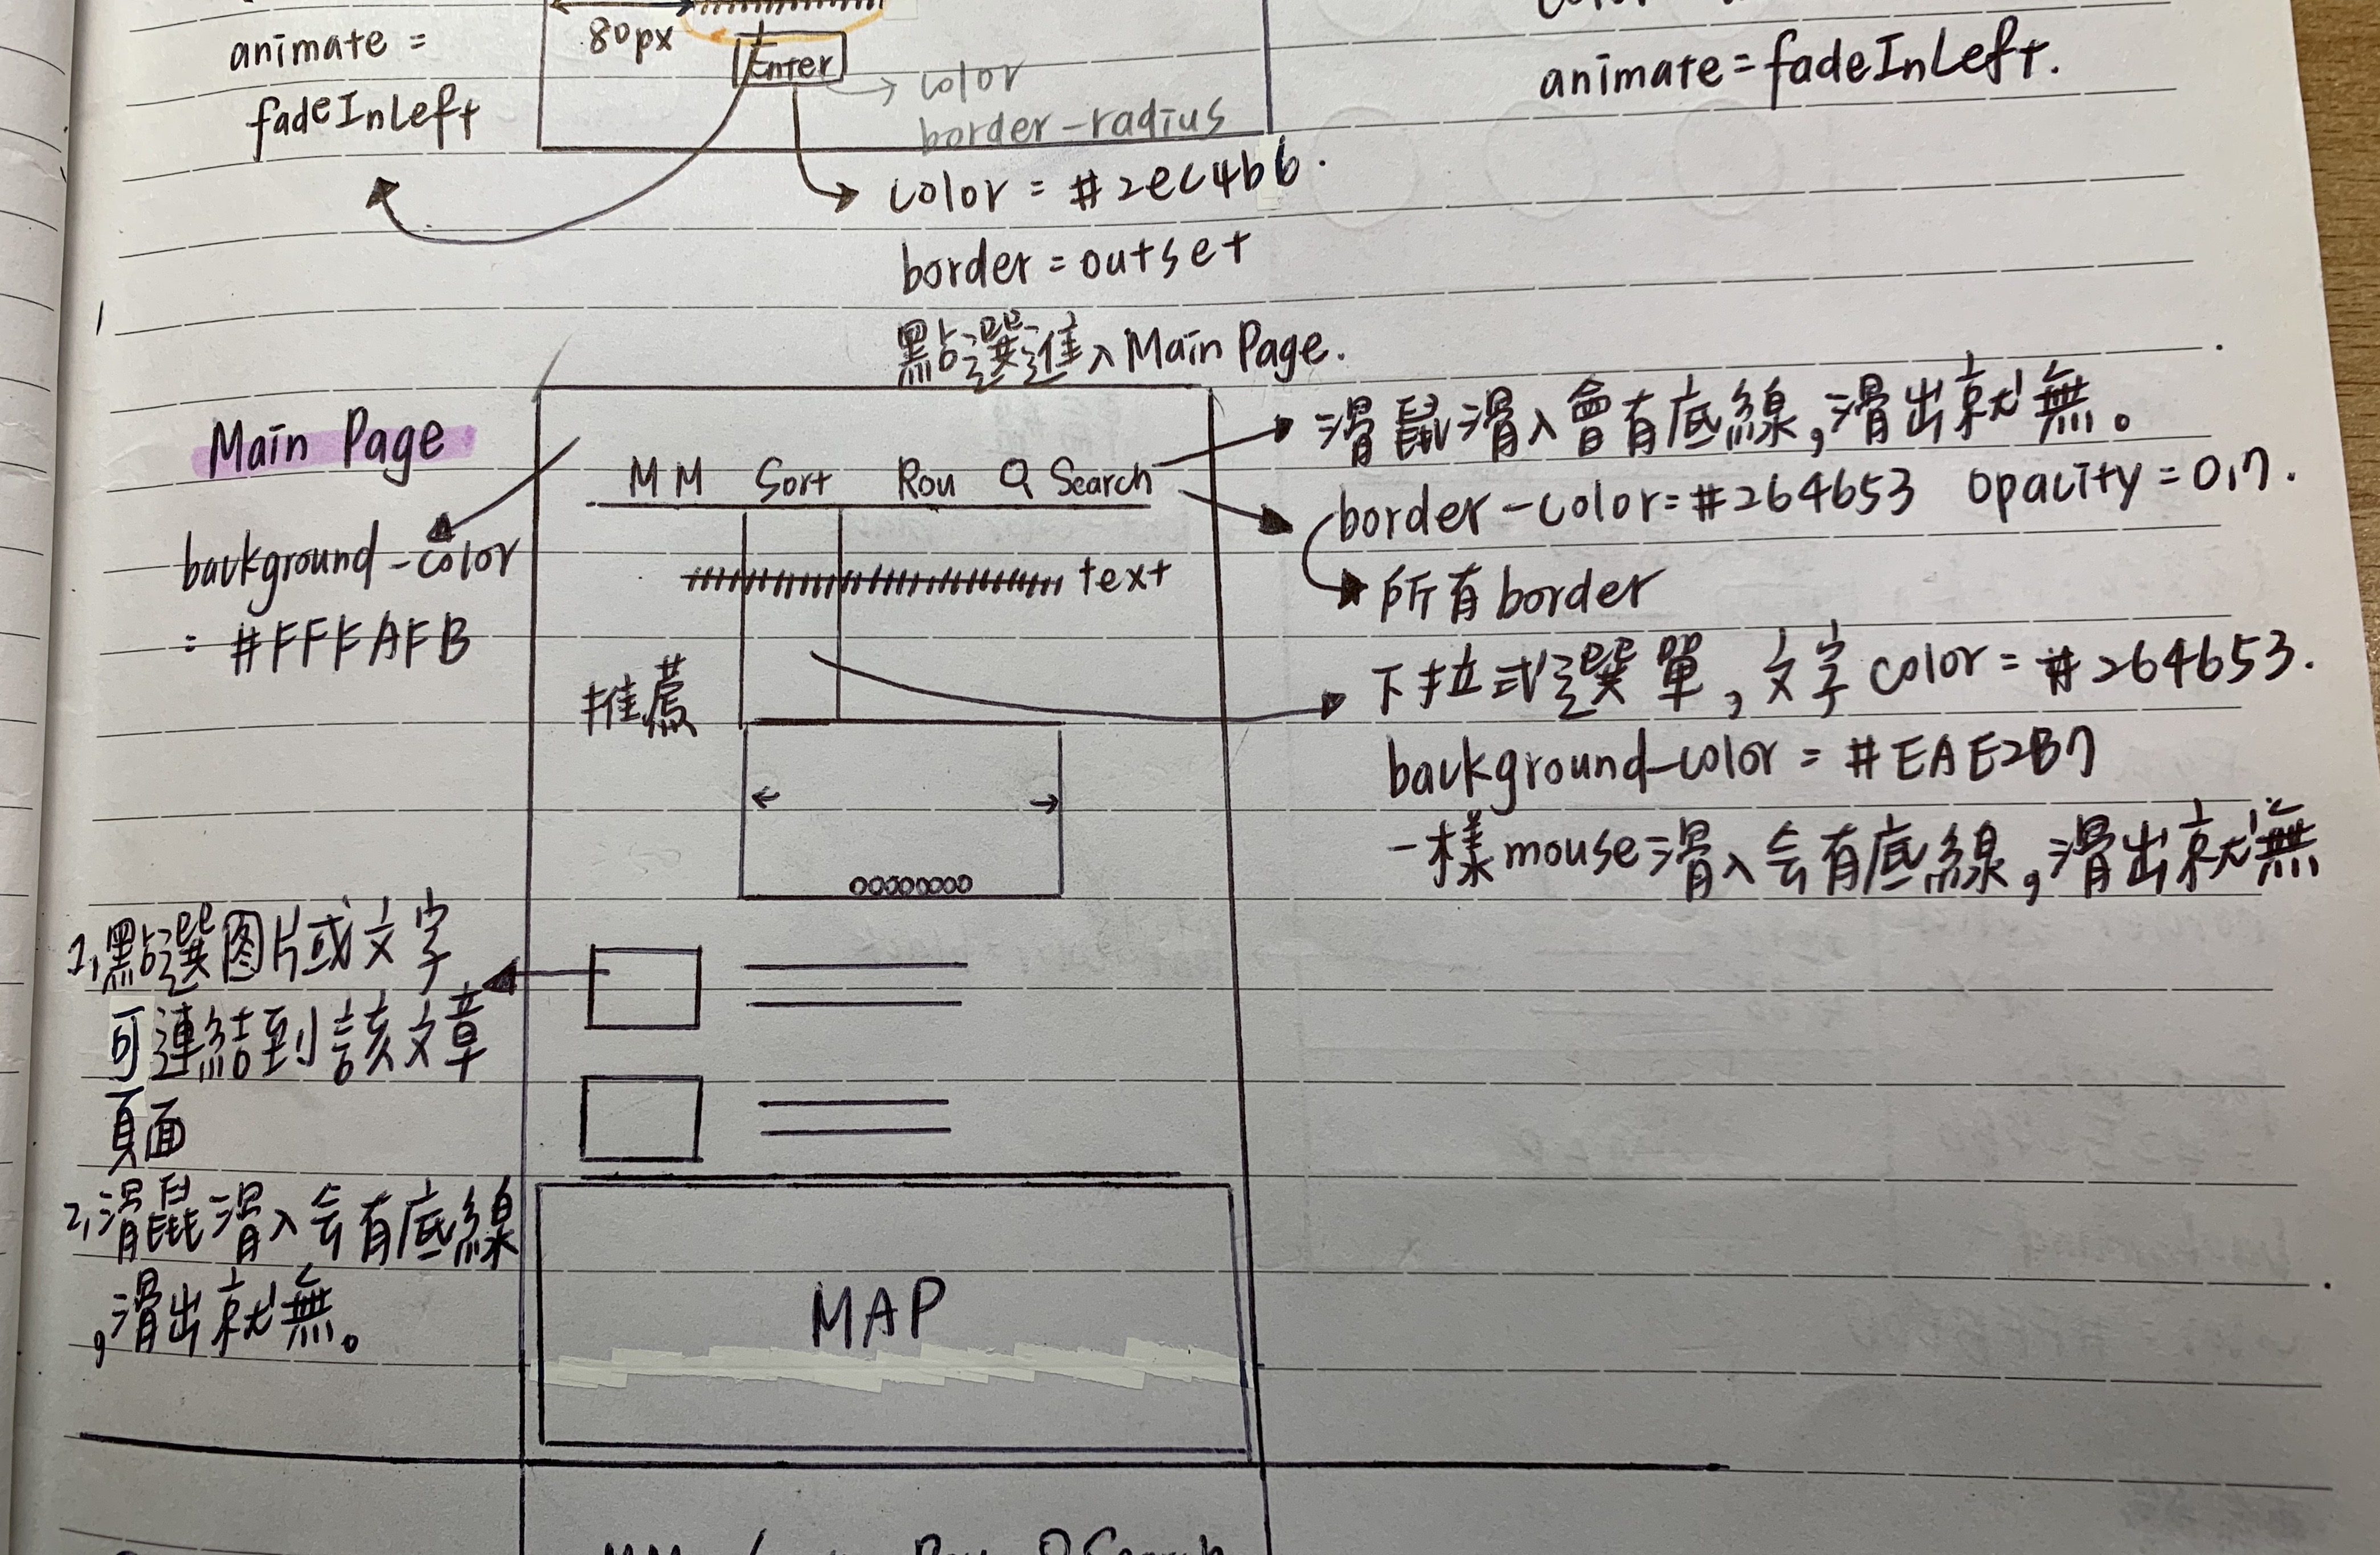 animate =
fadeInLeft
80px
Enter
color
border-radius
animate = fadeInLeft.
color = #2ec4b6.
border = outset
點選進入Main Page.
Main Page
background-color
= #FFFAFB
MM Sort Rou Search
text
推薦
滑鼠滑入會有底線,滑出就無。
border-color = #264653 opacity = 0.7.
所有border
下拉式選單,文字color = #264653.
background-color = #EAE2B7
一樣mouse滑入会有底線,滑出就無
1.點選图片或文字
可連結到該文章
頁面
2.滑鼠滑入会有底線
,滑出就無。
MAP